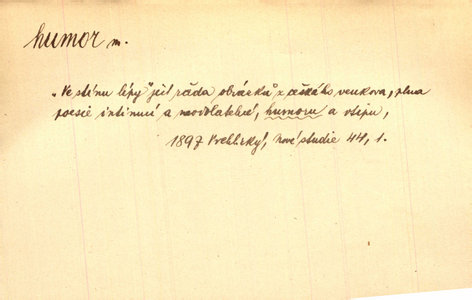 humor m.
„Ve stínu lípy" jest řada obrázků z českého venkova, plna
poesie intimní a nevšední, humoru a vtipu,
1897 Vrchlický, Nové studie 44, 1.